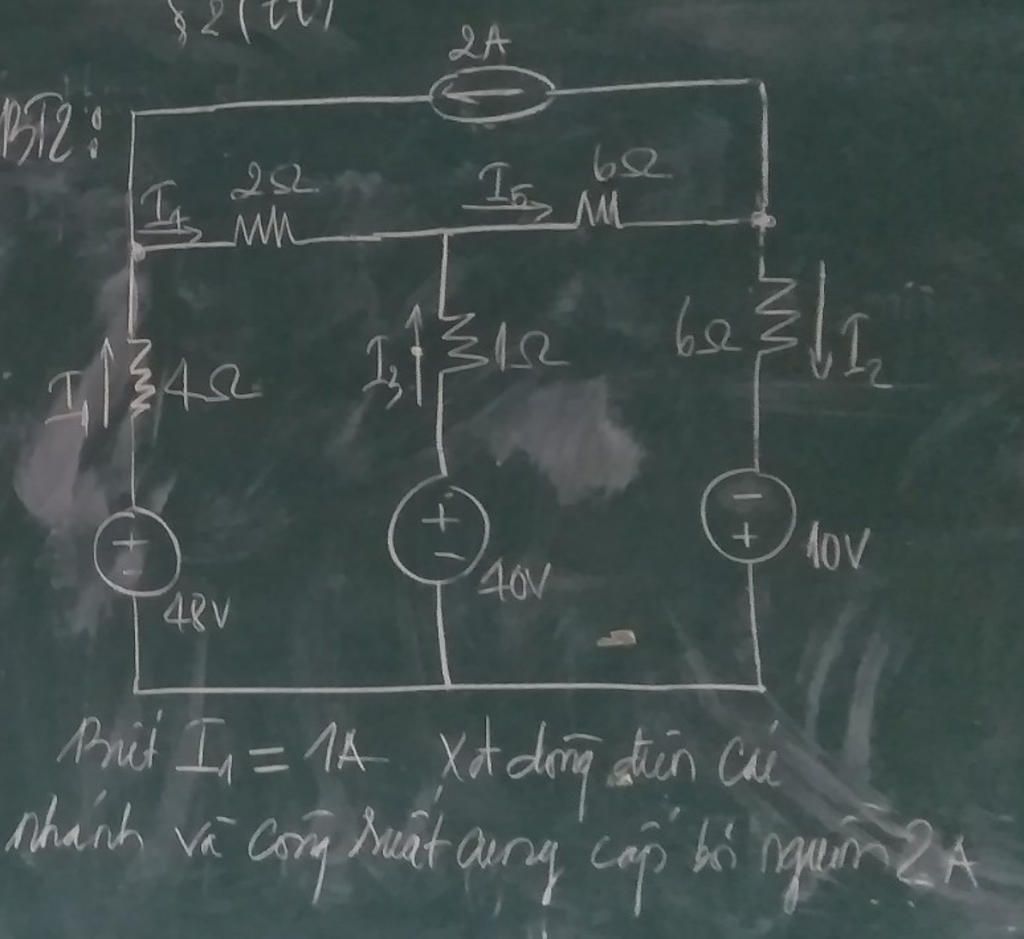 §2 (tt)
2A
BT2:
I4 2Ω I5 6Ω
I1 4Ω I3 1Ω 6Ω I2
+ - 48V + - 40V - + 10V
Biết I1 = 1A Xđ dòng điện các
nhánh và công suất cung cấp bởi nguồn 2A